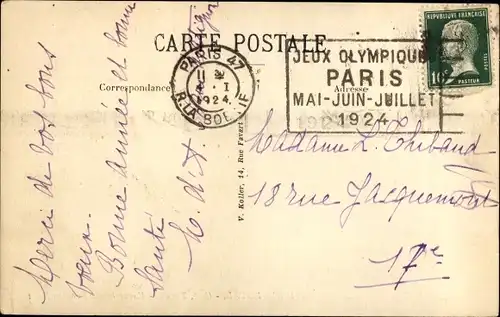 CARTE POSTALE
Correspondance
Adresse
PARIS 47
R. LA BOETIE
1924
JEUX OLYMPIQUES
PARIS
MAI-JUIN-JUILLET
1924
REPUBLIQUE FRANÇAISE
10
PASTEUR
V. Koller, 14, Rue Livert
Merci de vos bons
vœux.
Bonne année et bonne
santé
Madame L. Thibaud
18 rue Jacquemont
17e